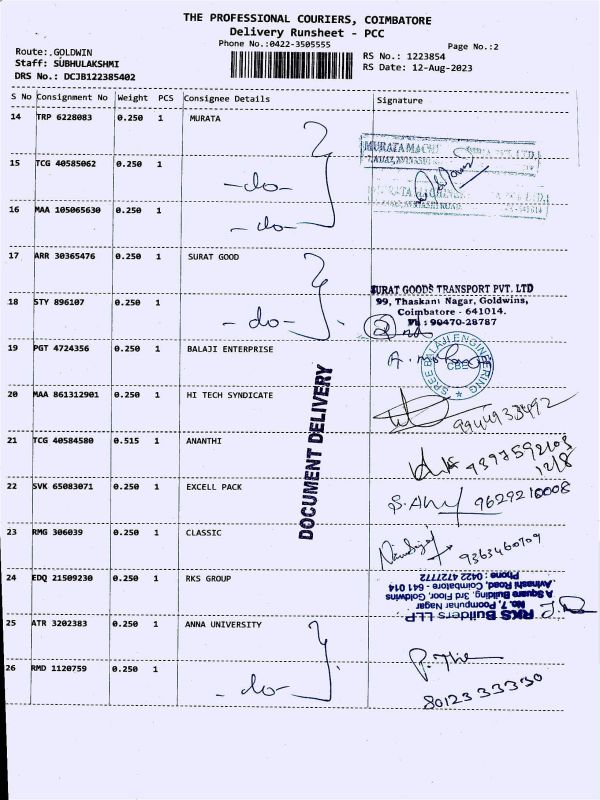 THE PROFESSIONAL COURIERS, COIMBATORE
Delivery Runsheet - PCC
Phone No.:0422-3505555
Page No.:2
Route:.GOLDWIN
Staff: SUBHULAKSHMI
DRS No.: DCJB122385402
RS No.: 1223854
RS Date: 12-Aug-2023
S No Consignment No Weight PCS Consignee Details Signature
14 TRP 6228083 0.250 1 MURATA
15 TCG 40585062 0.250 1 -do-
16 MAA 105065630 0.250 1 -do-
17 ARR 30365476 0.250 1 SURAT GOOD
SURAT GOODS TRANSPORT PVT. LTD
99, Thaskani Nagar, Goldwins,
Coimbatore - 641014.
Ph : 90470-28787
18 STY 896107 0.250 1 -do-
19 PGT 4724356 0.250 1 BALAJI ENTERPRISE
SREE BALAJI ENGINEERING
CBE
20 MAA 861312901 0.250 1 HI TECH SYNDICATE
21 TCG 40584580 0.515 1 ANANTHI
12/8
22 SVK 65083071 0.250 1 EXCELL PACK
9629210008
23 RMG 306039 0.250 1 CLASSIC
24 EDQ 21509230 0.250 1 RKS GROUP
RKS Builders LLP
No.7, Poompunar Nagar
A Square Building, 3rd Floor, Goldwins
Avinashi Road, Coimbatore - 641 014
Phone : 0422 4727772
25 ATR 3202383 0.250 1 ANNA UNIVERSITY
26 RMD 1120759 0.250 1 -do-
8012333330
DOCUMENT DELIVERY